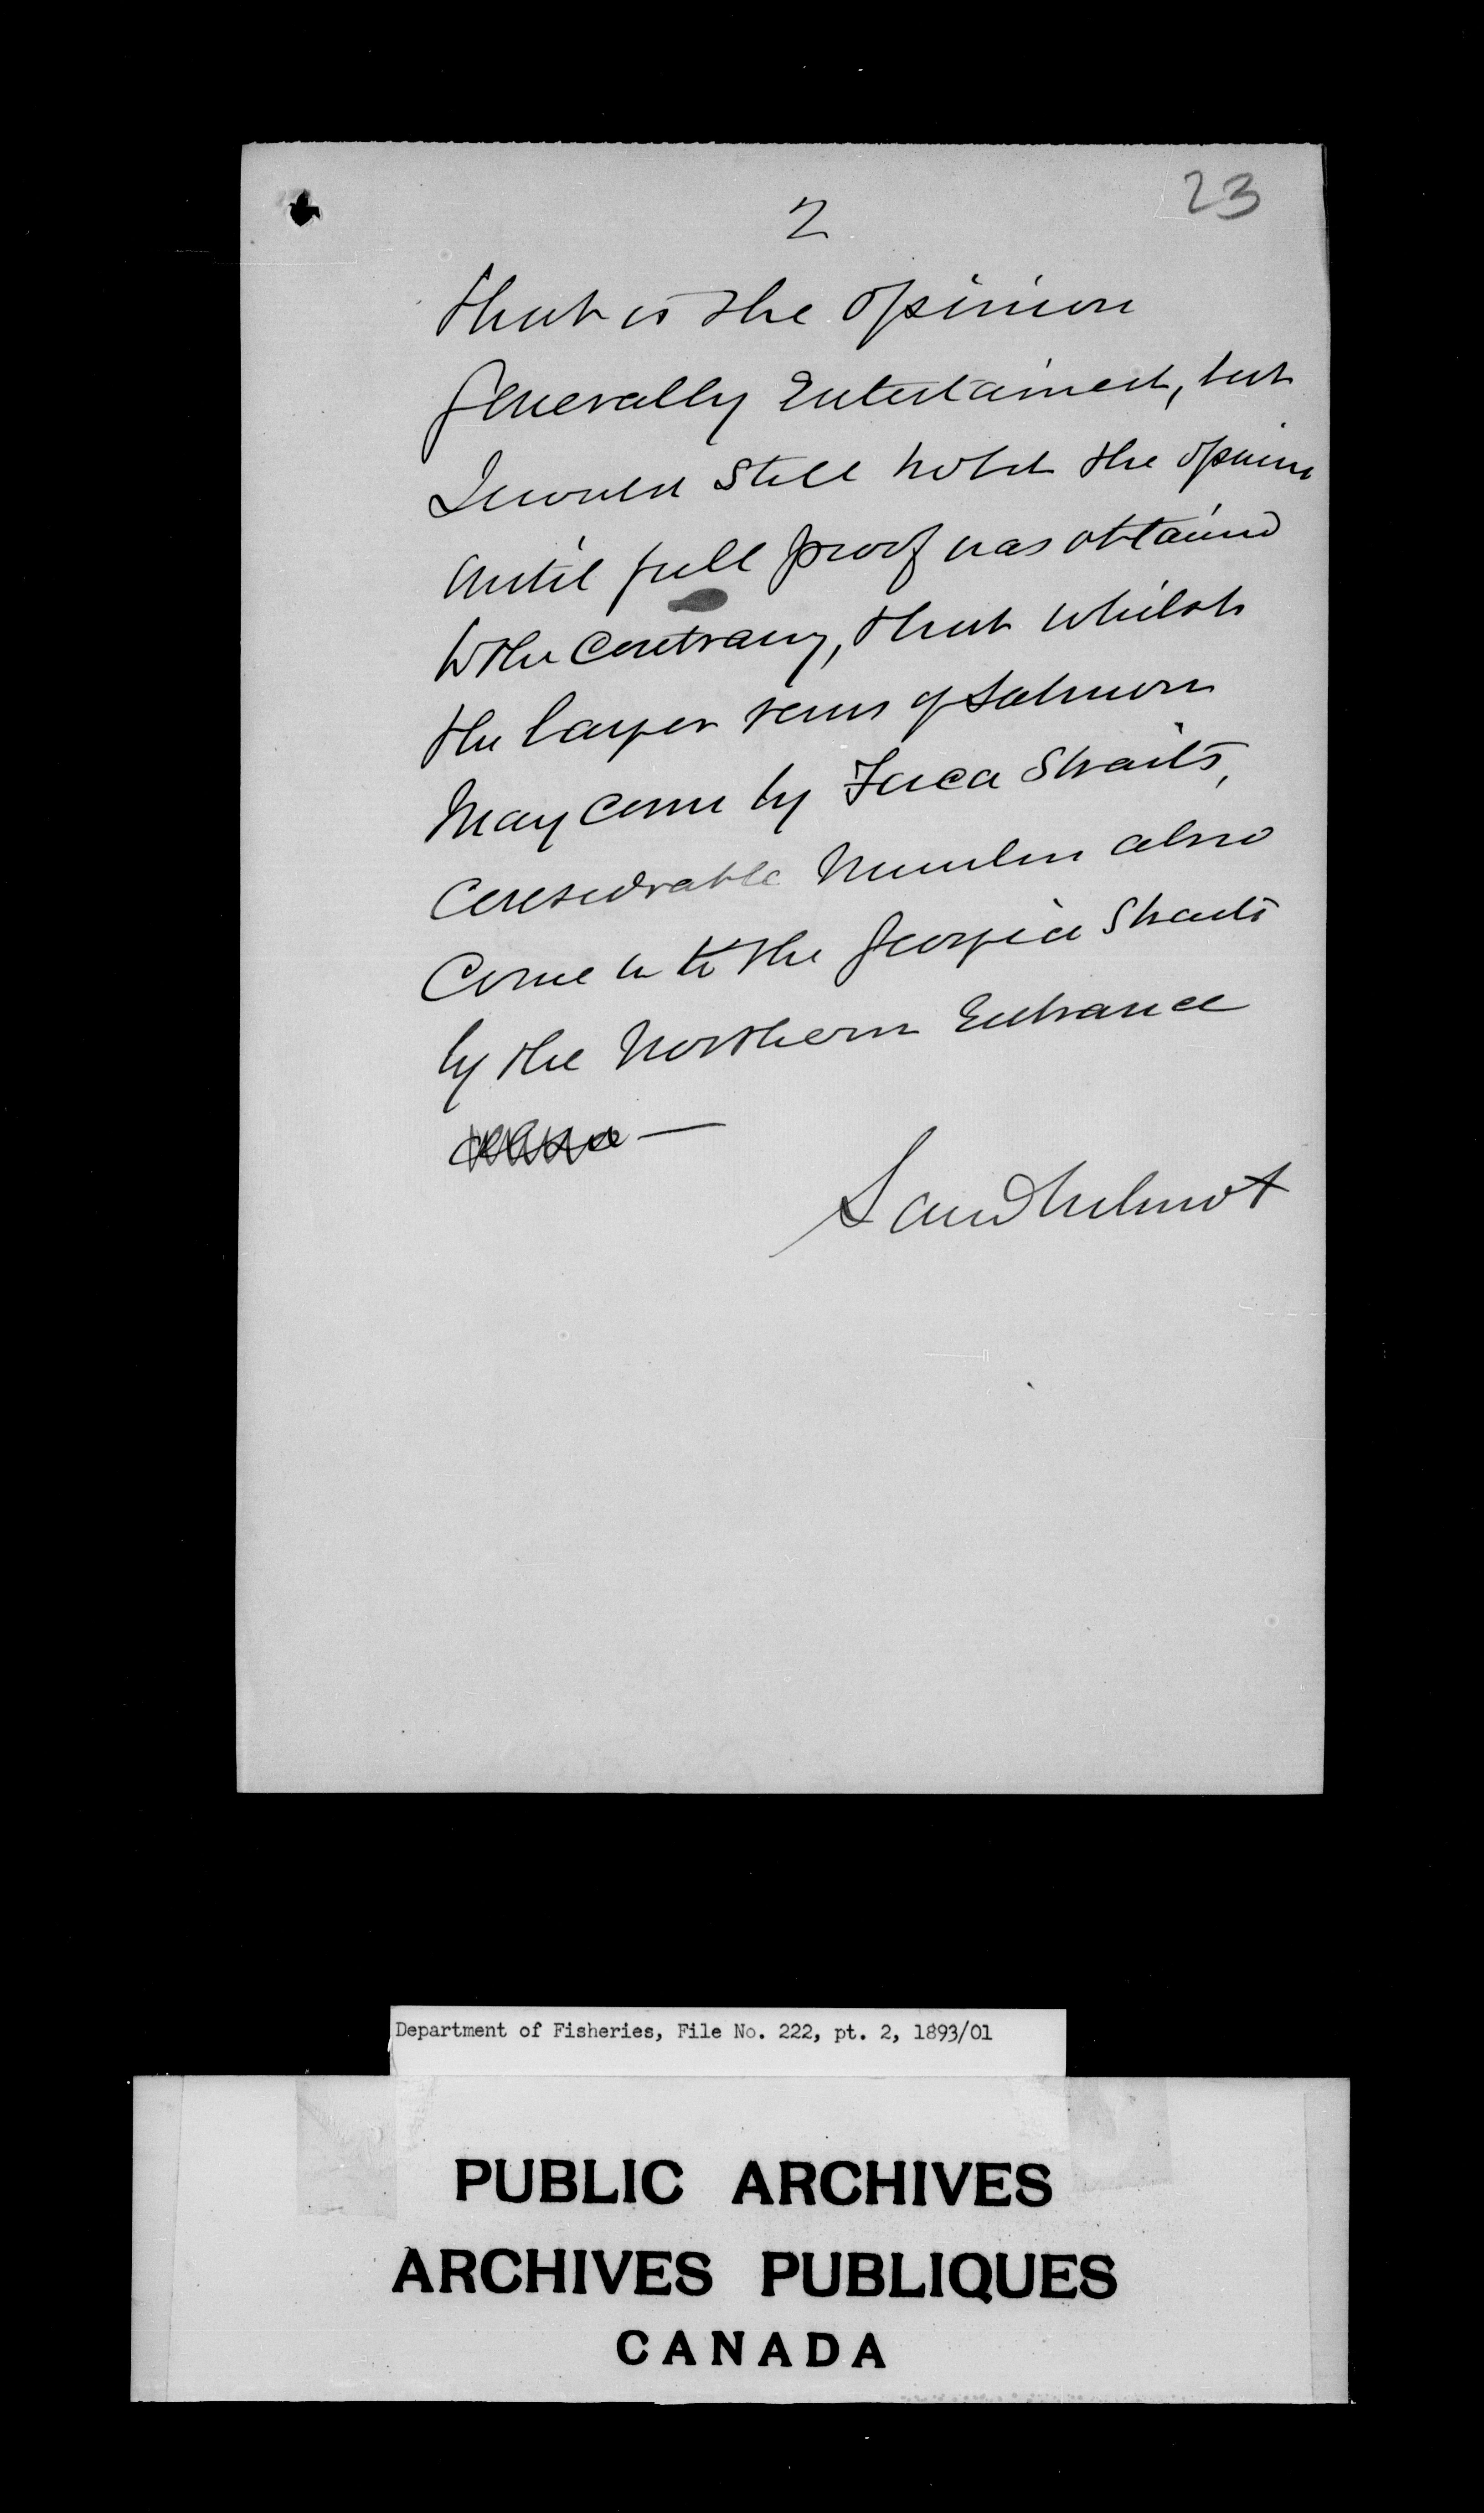 23
2
that is the opinion
generally entertained, but
I would still hold the opinion
until full proof was obtained
to the contrary, that whilst
the larger runs of Salmon
may come by Fuca Straits,
considerable number also
come into the Georgia Straits
by the Northern Entrance
—
Sam Wilmot
Department of Fisheries, File No. 222, pt. 2, 1893/01
PUBLIC ARCHIVES
ARCHIVES PUBLIQUES
CANADA